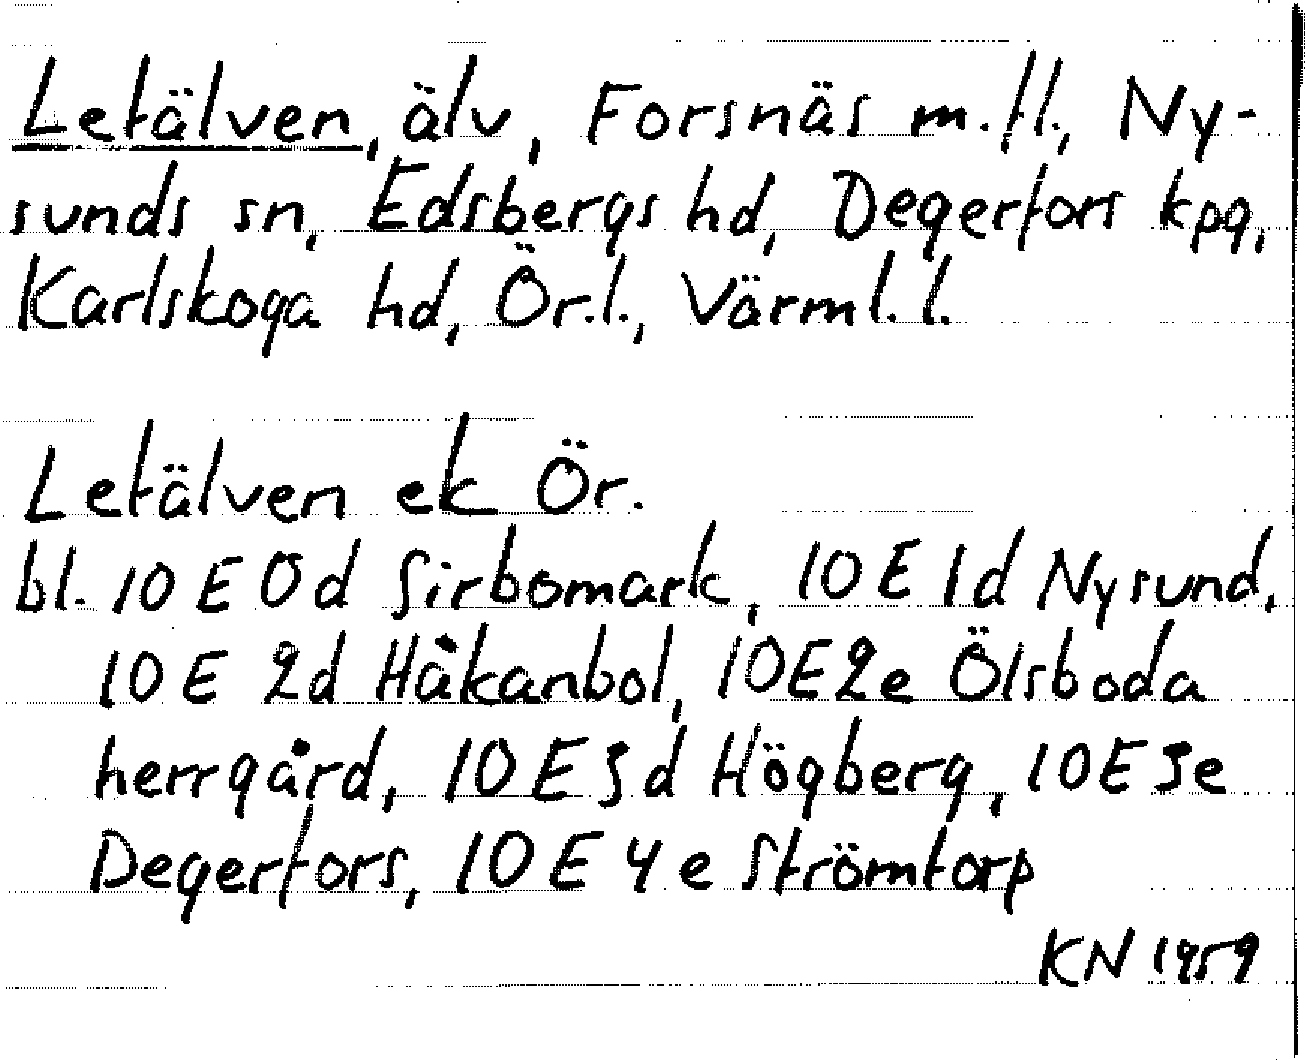 Letälven, älv, Forsnäs m.fl., Ny-
sunds sn, Edsbergs hd, Degerfors kpg,
Karlskoga hd, Ör.l., Värml. l.
Letälven ek Ör.
bl. 10 E 0d Sirbomark, 10 E 1d Nysund,
10 E 2d Håkanbol, 10E2e Ölsboda
herrgård, 10 E 3d Högberg, 10E 3e
Degerfors, 10 E 4e Strömtorp
KN 1959